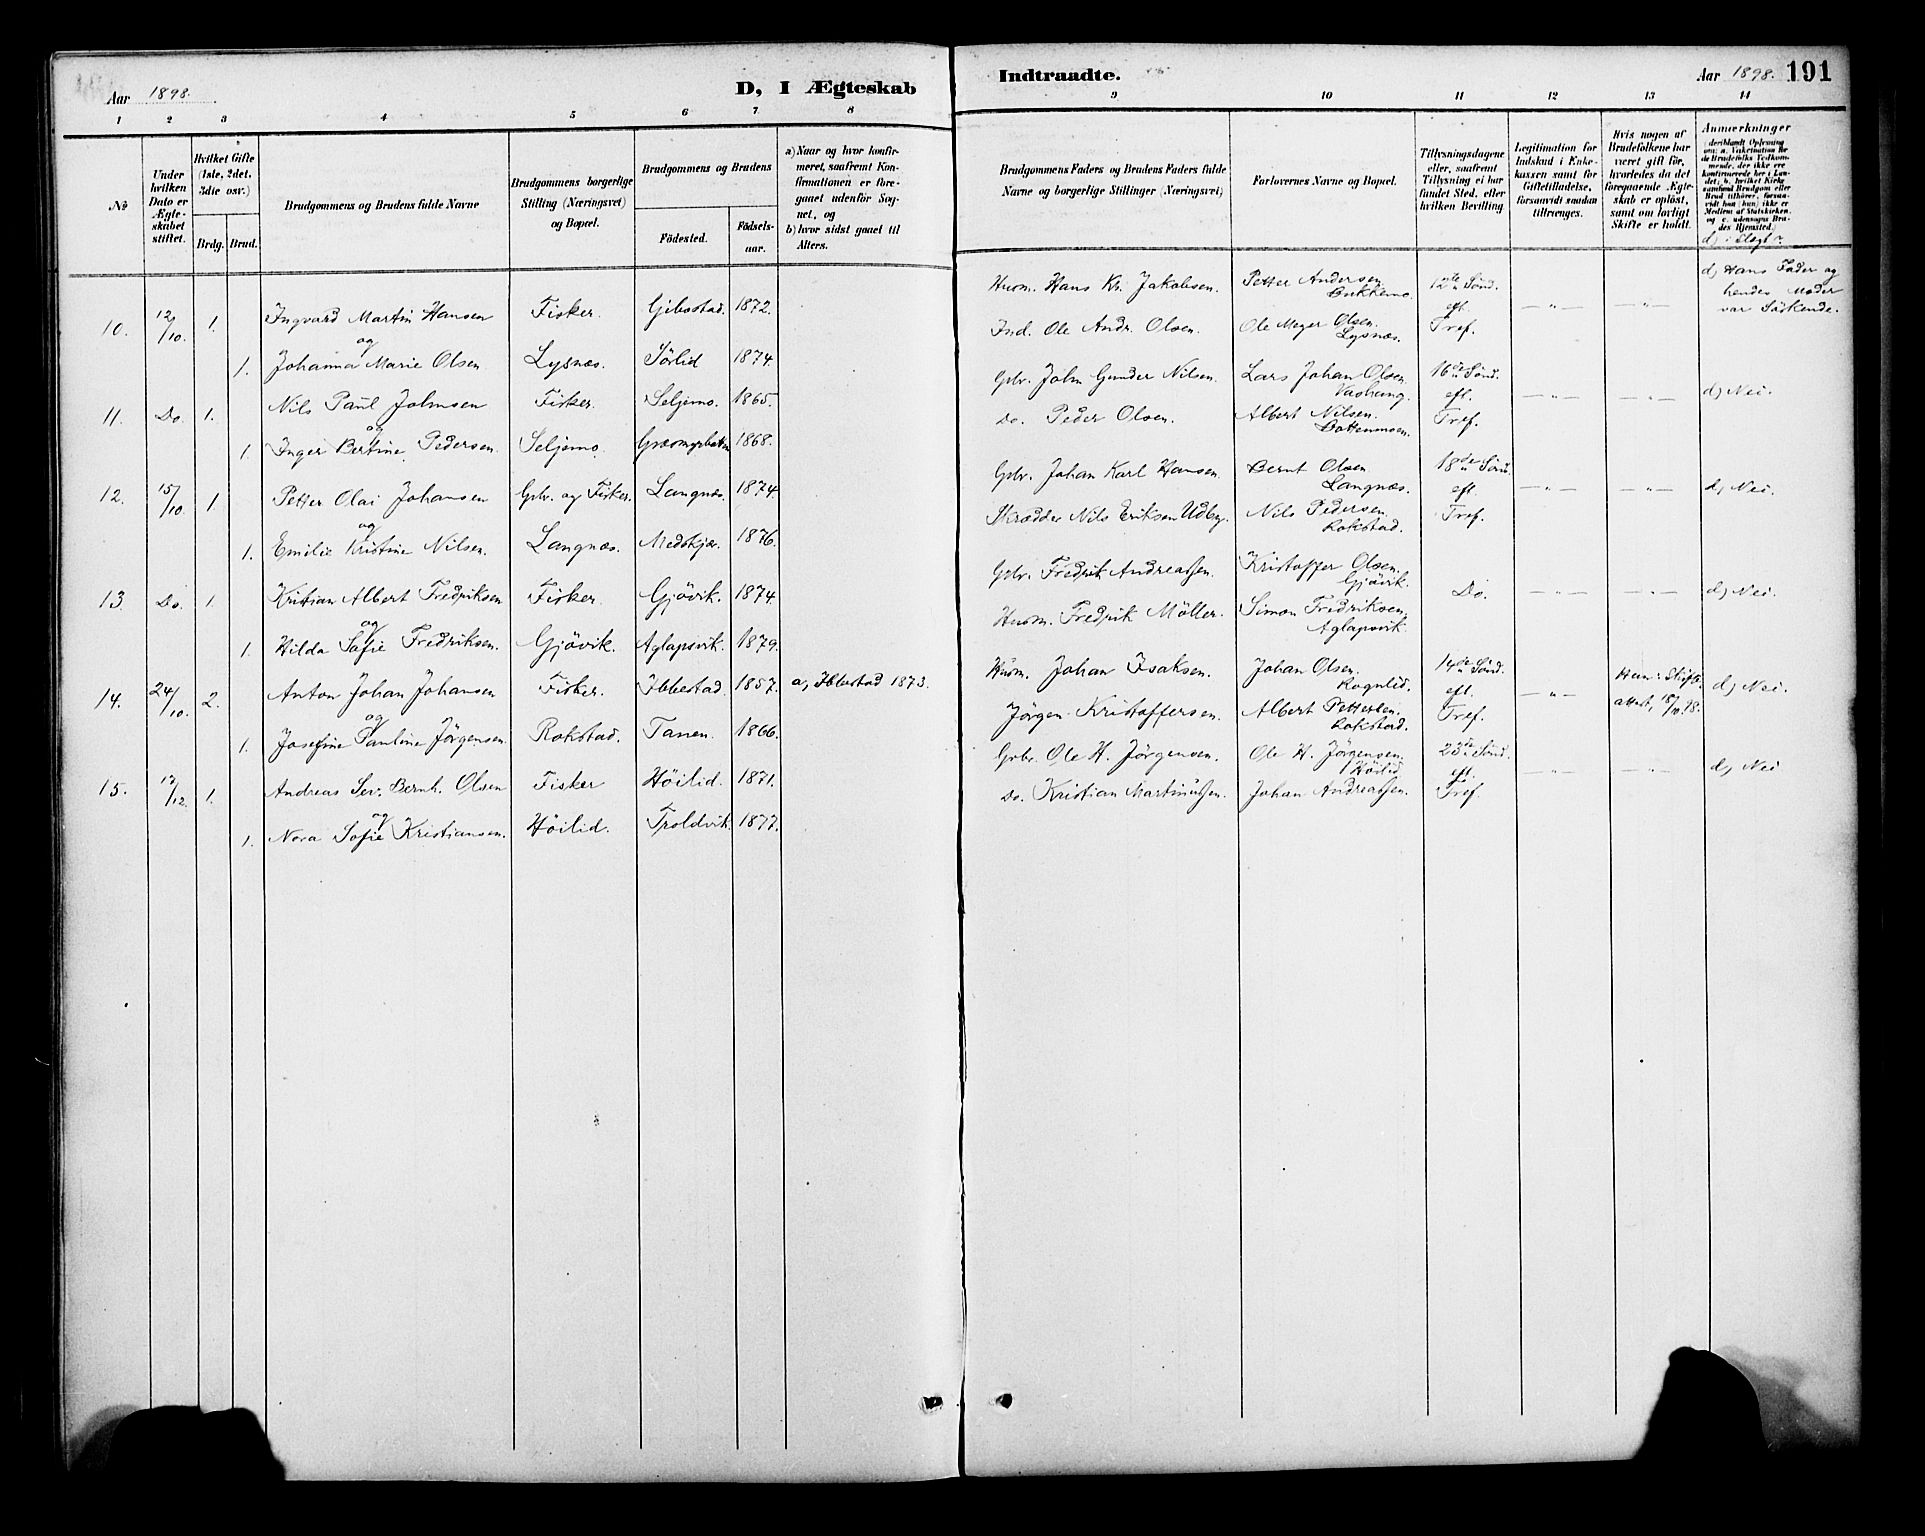 Aar 1898.
D, I Ægteskab
Indtraadte.
Aar 1898.
191
1 2 3 4 5 6 7 8 9 10 11 12 13 14
№
Under hvilken Dato er Ægteskabet stiftet.
Hvilket Gifte (1ste, 2det, 3die osv.)
Brdg. Brud.
Brudgommens og Brudens fulde Navne
Brudgommens borgerlige Stilling (Næringsvei) og Bopæl.
Brudgommens og Brudens
Födested.
Födselsaar.
a) Naar og hvor konfirmeret, saafremt Konfirmationen er foregaaet udenfor Sognet, og
b) hvor sidst gaaet til Alters.
Brudgommens Faders og Brudens Faders fulde Navne og borgerlige Stillinger (Næringsvei)
Forlovernes Navne og Bopæl.
Tillysningsdagene eller, saafremt Tillysning ei har fundet Sted, efter hvilken Bevilling
Legitimation for Indskud i Enkekassen samt for Giftetilladelse, forsaavidt saadan tiltrenges.
Hvis nogen af Brudefolkene har været gift för, hvorledes da det foregaaende Ægteskab er oplöst, samt om lovligt Skifte er holdt.
Anmærkninger
deriblandt Oplysning om: a. Vaksination for de Brudefolks Vedkommende, der ikke ere konfirmerede her i Landet, b. hvilket Kirkesamfund Brudgom eller Brud tilhörer, forsaavidt han (hun) ikke er Medlem af Statskirken, og c. udensogns Brudes Hjemsted.
d) i Slægt?
10. 12/10. 1. Ingvard Martin Hansen Fisker. Gibostad. 1872. Husm. Hans Kr. Jakobsen. Petter Andersen Bukkemo. 12te Sönd. — „ — — „ — d) Hans Fader og hendes Moder var Söskende.
og
1. Johanna Marie Olsen Lysnæs. Sörlid 1874. Ind. Ole Andr. Olsen. Ole Meyer Olsen. Lysnæs. eft. Tref.
11. Do. 1. Nils Paul Johnsen Fisker. Seljemo. 1865. Gbr. John Gunder Nilsen. Lars Johan Olsen 16de Sönd. — „ — — „ — d) Nei.
og
1. Inger Bertine Pedersen. Seljemo. 1868. Do. Peder Olsen. Albert Nilsen. Bottenmoen. eft. Tref.
12. 15/10. 1. Petter Olai Johansen Gbr. og Fisker. Langnæs. 1874. Gbr. Johan Karl Hansen. Bernt Olsen Langnæs. 18de Sönd. — „ — — „ — d) Nei.
og
1. Emilie Kristine Nilsen. Langnæs. Medskjær. 1876. Skrædder Nils Eriksen Udby. Nils Pedersen. Rokstad. eft. Tref.
13. Do. 1. Kristian Albert Fredriksen Fisker. Gjövik. 1874. Gbr. Fredrik Andreassen. Kristoffer Olsen. Gjövik. Do. — „ — — „ — d) Nei.
og
1. Hilda Sofie Fredriksen. Gjövik. Aglapsvik. 1879. Husm. Fredrik Möller. Simon Fredriksen. Aglapsvik.
14. 24/10. 2. Anton Johan Johansen Fisker. Ibbestad. 1857. a, Ibbestad 1873. Husm. Johan Isaksen. Johan Olsen Rognlid. 14de Sönd. — „ — attest, 18/10. 98. d) Nei.
og
1. Josefine Pauline Jörgensen. Rokstad. Tanen. 1866. Jörgen Kristoffersen. Albert Pettersen. Rokstad. eft. Tref.
15. 12. 1. Andreas Sev. Bernh. Olsen Fisker Höilid. 1871. Gbr. Ole H. Jörgensen. Ole H. Jörgensen. Höilid. 23de Sönd. — „ — — „ — d) Nei
og
1. Nora Sofie Kristiansen. Höilid. Troldvik. 1877. Do. Kristian Martinussen. Johan Andreassen. eft. Tref.